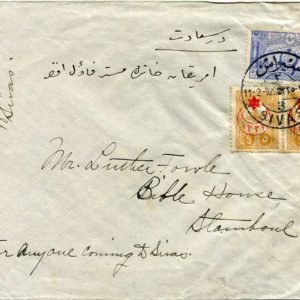 در سعادت
امریقان خانی مستر فاؤل افندی
SIVAS
Mr. Luther Fowle
Bible House
Stamboul
For anyone coming to Sivas.